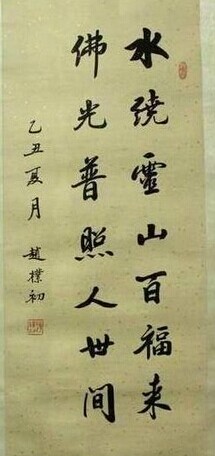 水绕靈山百福来
佛光普照人世间
乙丑夏月 趙樸初